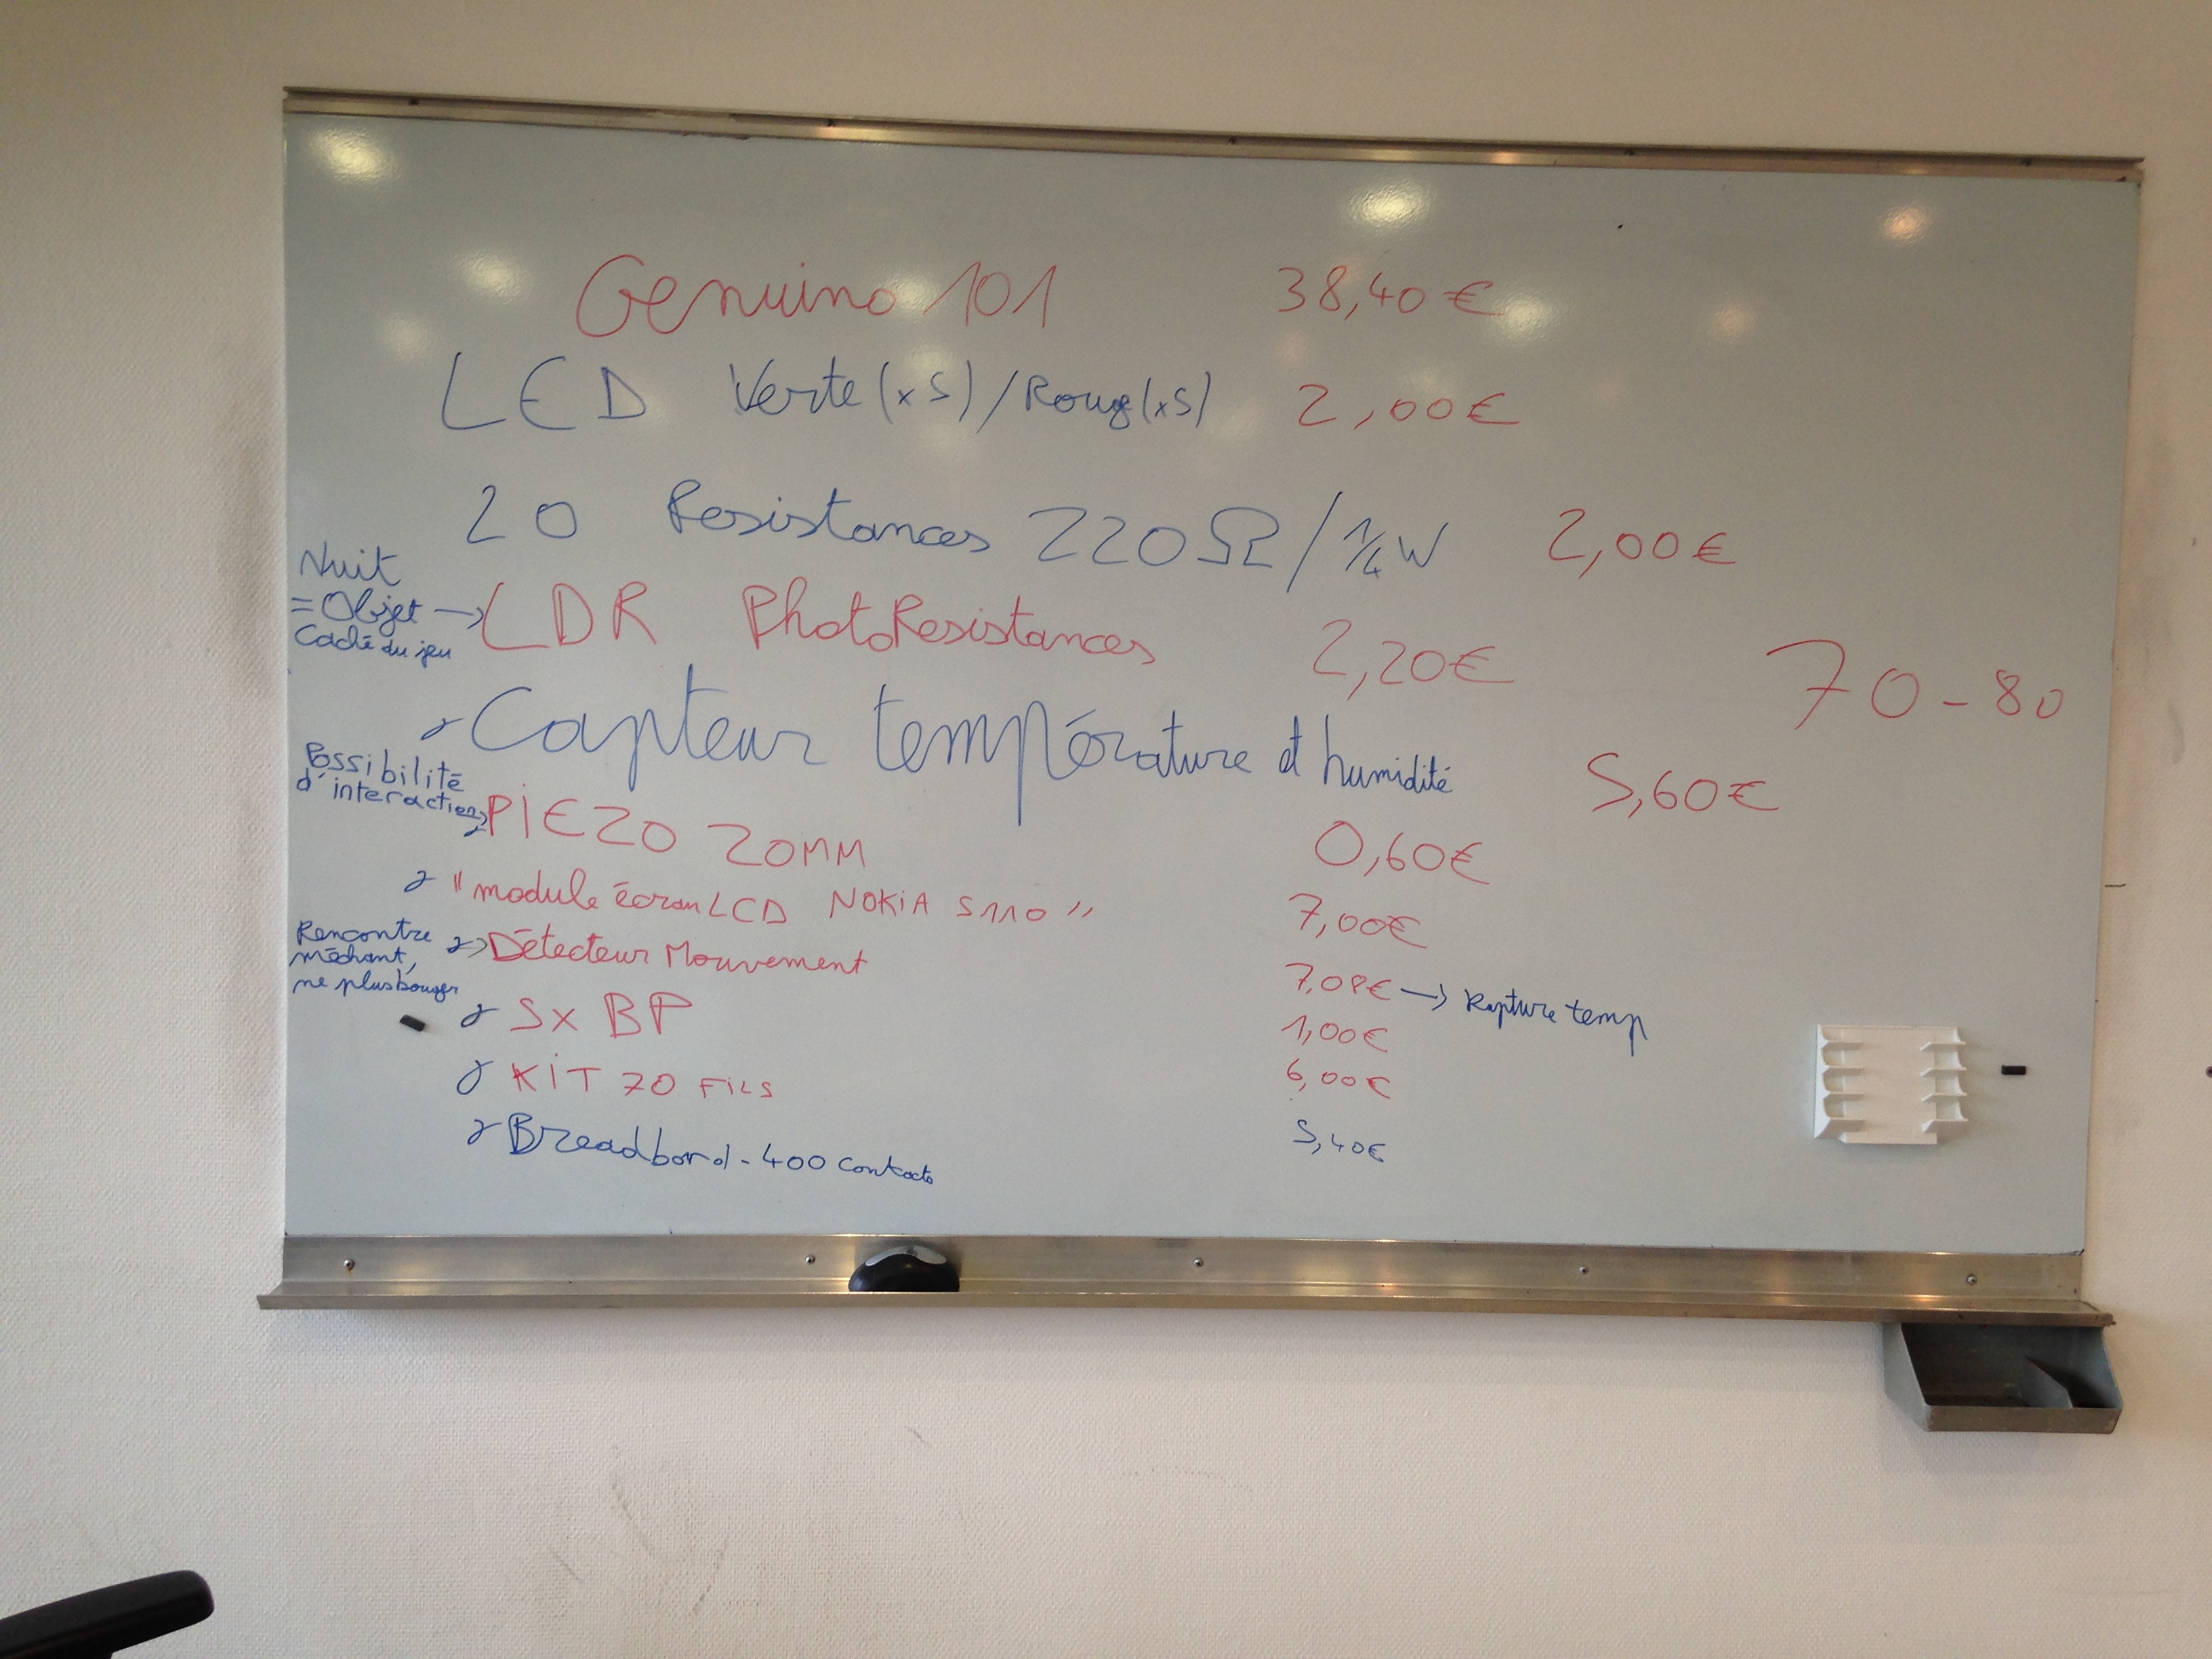 Genuino 101 38,40€
LED Verte (x5) / Rouge (x5) 2,00€
20 Resistances 220Ω / 1/4 W 2,00€
Nuit
= Objet →
Caché du jeu
LDR PhotoResistances 2,20€
70-80
Capteur température et humidité 5,60€
Possibilité
d'interaction
PiEZO 20MM 0,60€
"module écran LCD NOKiA 5110" 7,00€
Rencontre
méchant,
ne plus bouger
Détecteur Mouvement 7,08€ → Rupture temp
5x BP 1,00€
KiT 70 FiLS 6,00€
Breadbord - 400 contacts 5,40€